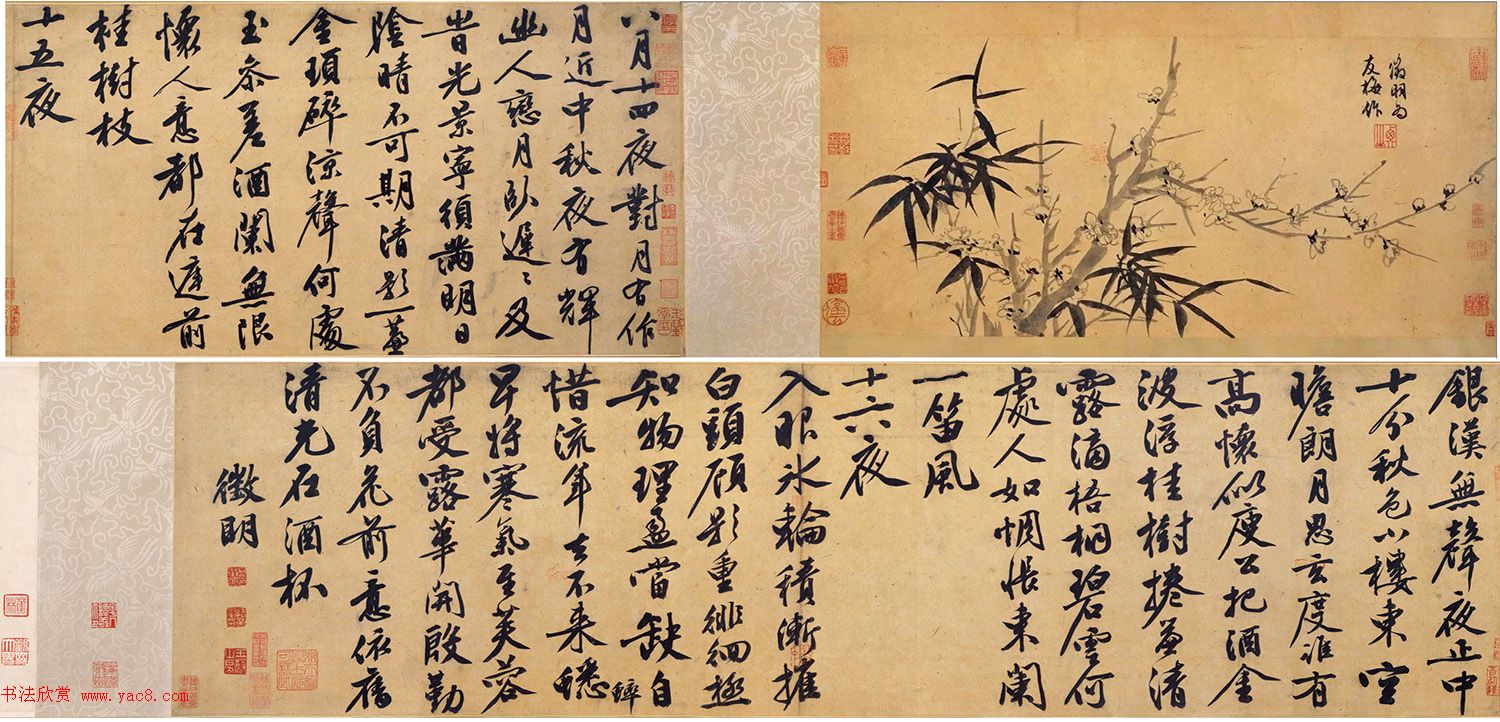 徵明為
友梅作
八月十四夜對月有作
月近中秋夜有輝
幽人戀月臥遲〻及
旹光景寧須滿明日
陰晴不可期清影一簾
金瑣碎涼聲何處
玉參差酒闌無限
懷人意都在庭前
桂樹枝
十五夜
銀漢無聲夜正中
十分秋色小樓東空
瞻朗月思玄度誰有
高懷似庾公把酒金
波浮桂樹捲簾清
露滴梧桐碧雲何
處人如惆悵東闌
一笛風
十六夜
入眼冰輪積漸摧
白頭顧影重徘徊極
知物理盈當缺自
惜流年去不来蟋蟀
早將寒氣至芙蓉
都受露華開殷勤
不負花前意依舊
清光在酒杯
徵明
书法欣赏 www.yac8.com